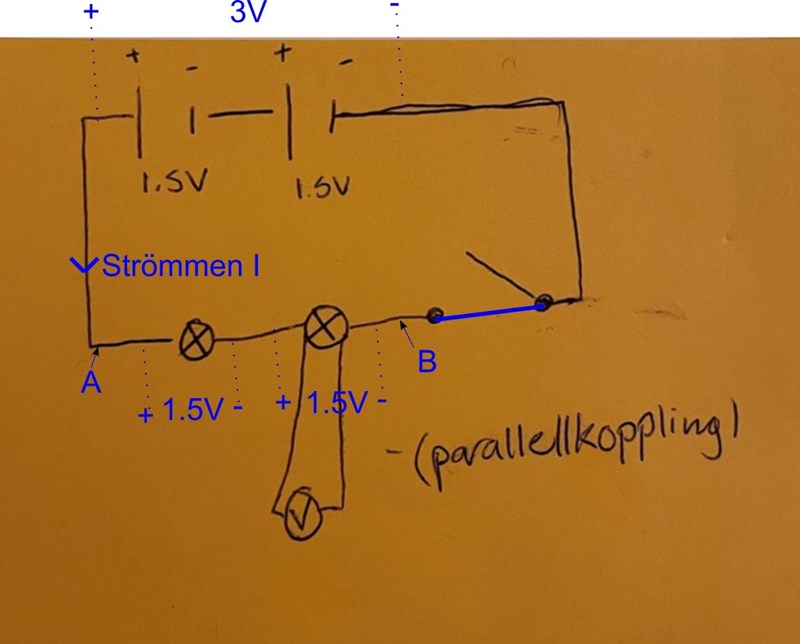 + 3V -
+ - + -
1.5V 1.5V
Strömmen I
A B
+ 1.5V - + 1.5V -
- (parallellkoppling)
V